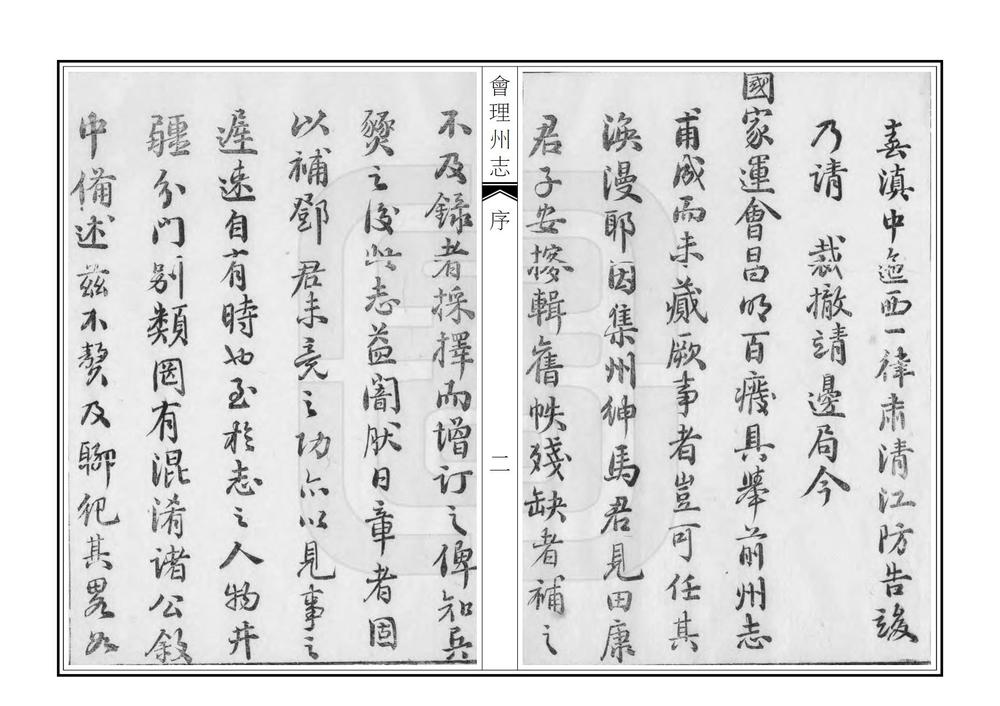 春滇中迤西一律肅清江防告竣
乃請 裁撤靖邊局今
國家運會昌明百癈具舉前州志
甫成而未藏厥事者豈可任其
渙漫耶因集州紳馬君見田康
君子安搽輯舊帙殘缺者補之
會理州志
序
二
不及錄者採擇而增訂之俾知兵
燹之後此志益闇肰日章者固
以補鄧 君未竟之功亦以見事之
遲速自有時也至於志之人物井
疆分門別類罔有混淆諸公敘
中備述茲不贅及聊紀其畧如